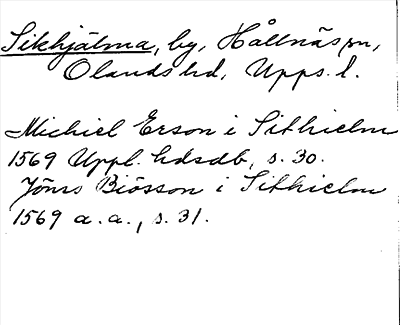 Sikhjälma, by, Hållnäs sn,
Olands hd, Upps. l.
Michiel Erson i Sikhielm
1569 Uppl. hdsdb, s. 30.
Jöns Biösson i Sikhielm
1569 a.a., s. 31.